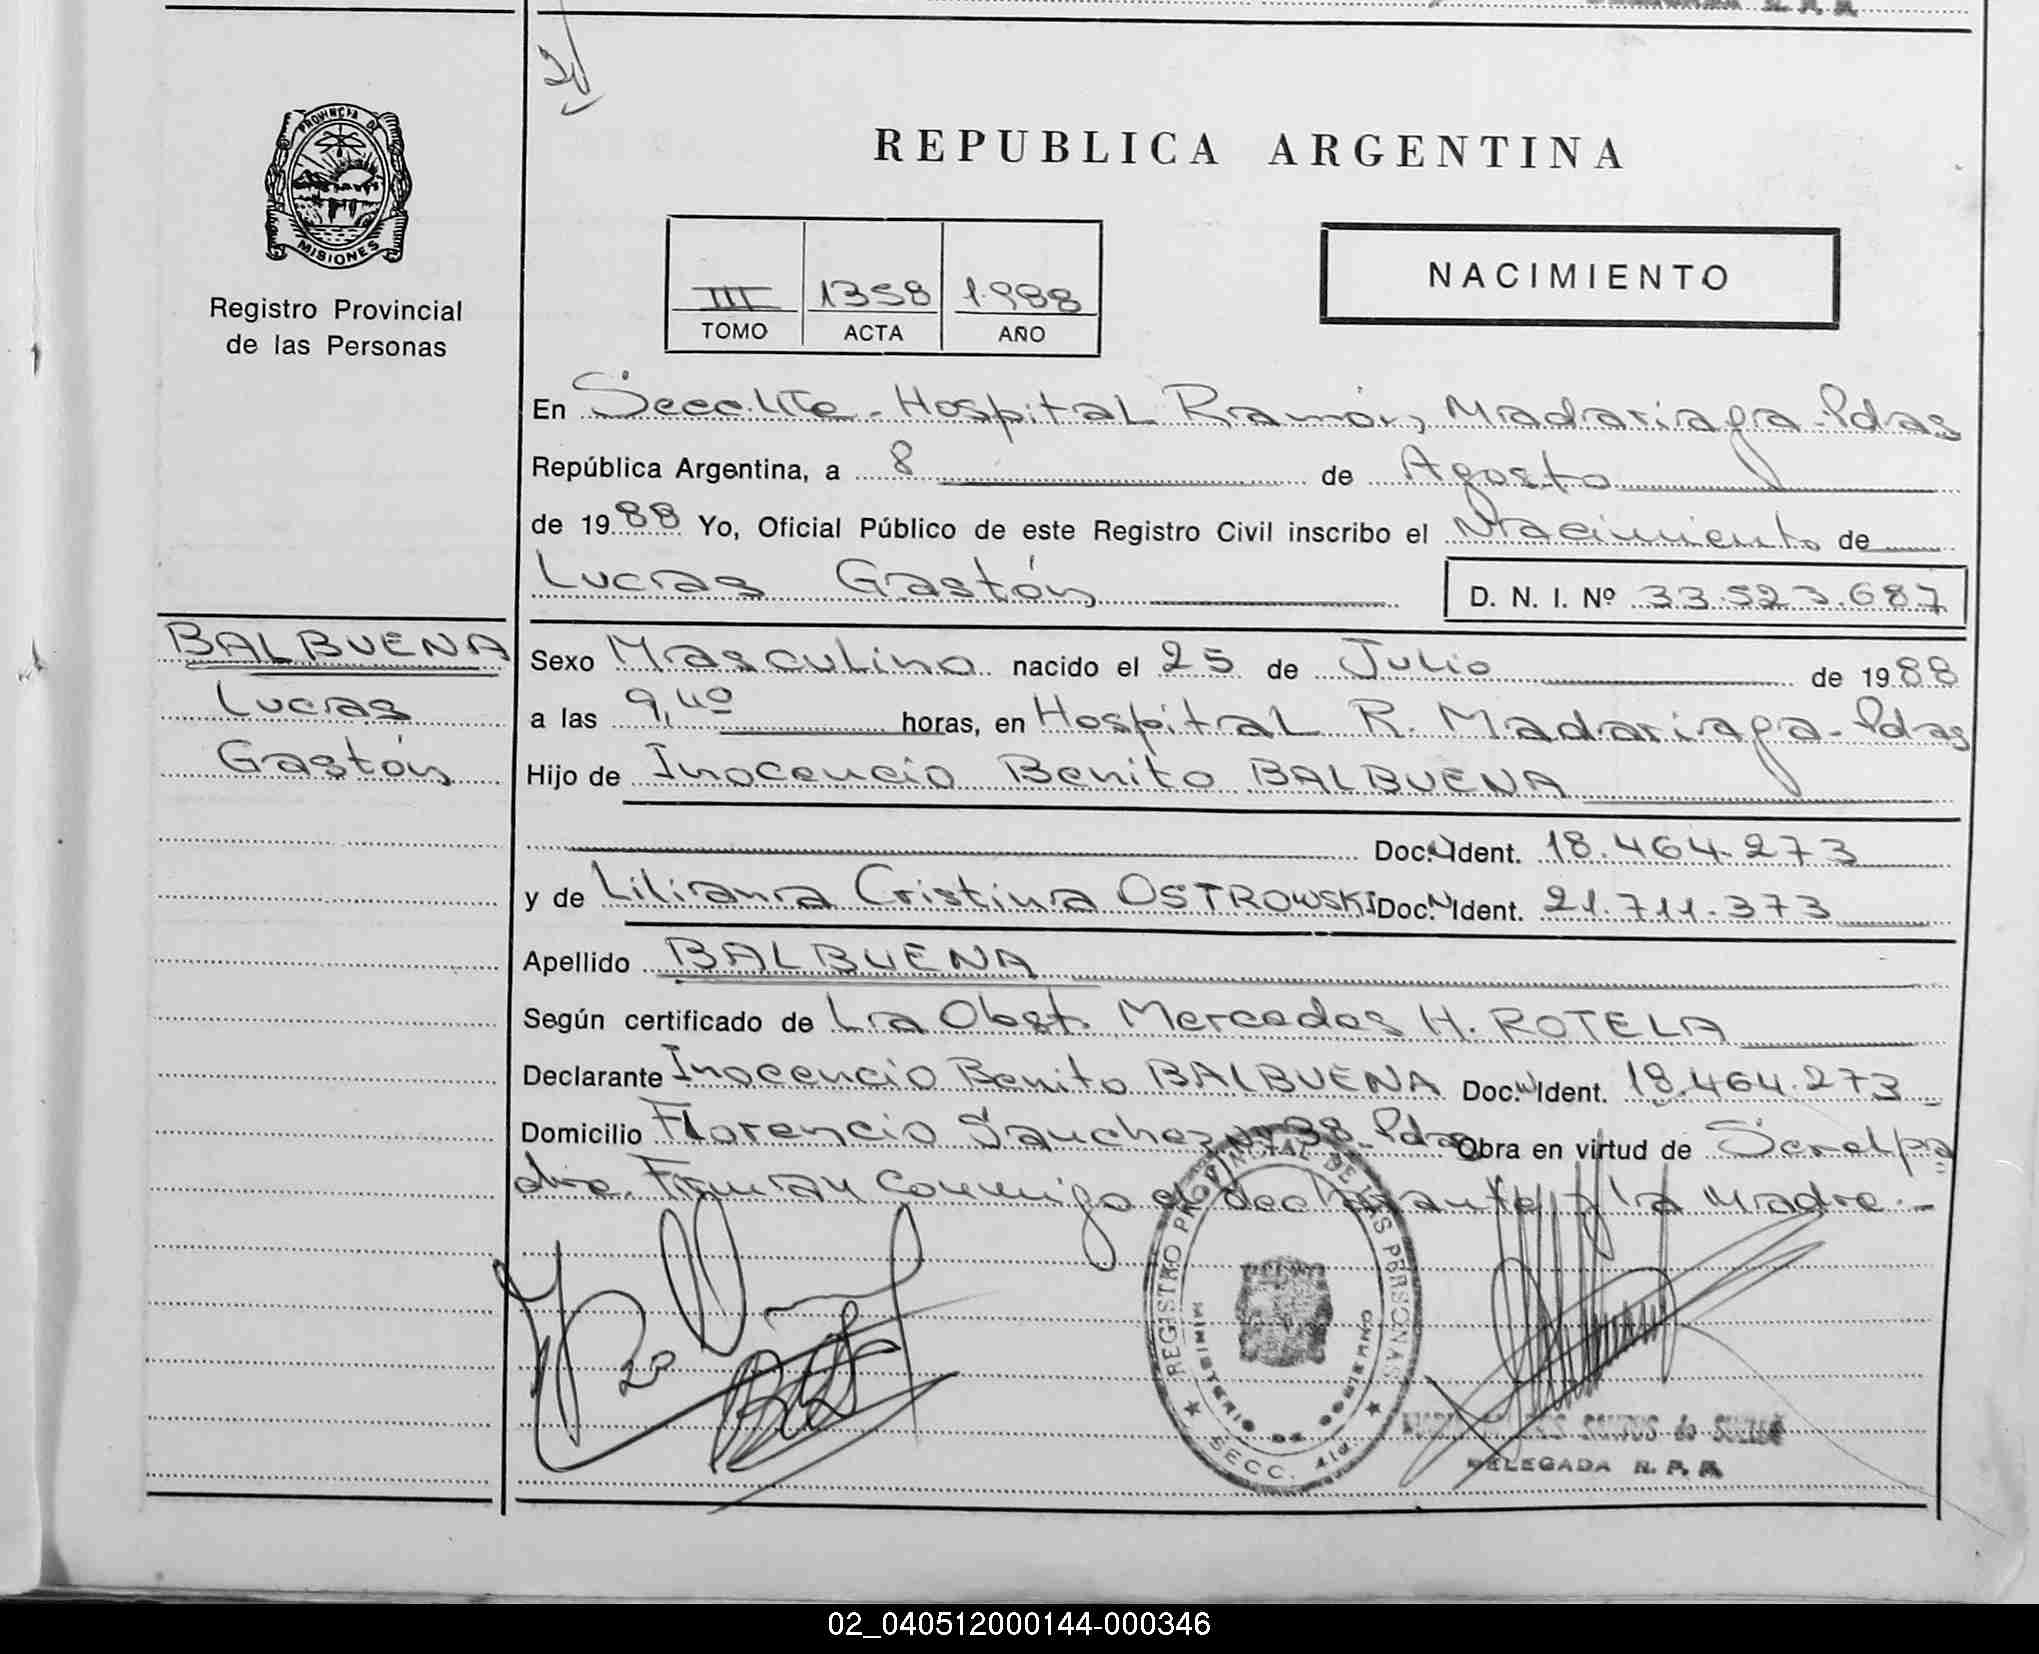 PROVINCIA DE
MISIONES
Registro Provincial
de las Personas
REPUBLICA ARGENTINA
III 1358 1.988
TOMO ACTA AÑO
NACIMIENTO
En Secc. Hospital Ramón Madariaga - Pdas
República Argentina, a 8 de Agosto
de 1988 Yo, Oficial Público de este Registro Civil inscribo el Nacimiento de
Lucas Gastón D. N. I. Nº 33.523.687
BALBUENA
Lucas
Gastón
Sexo Masculino nacido el 25 de Julio de 1988
a las 9,40 horas, en Hospital R. Madariaga - Pdas
Hijo de Inocencio Benito BALBUENA
Doc. Ident. 18.464.273
y de Liliana Cristina OSTROWSKI Doc. Ident. 21.711.373
Apellido BALBUENA
Según certificado de La Obst. Mercedes H. ROTELA
Declarante Inocencio Benito BALBUENA Doc. Ident. 18.464.273
Domicilio Florencio Sanchez Nº 38 - Pdas Obra en virtud de Ser el pa
dre. Firman conmigo el declarante y la Madre.-
REGISTRO PROVINCIAL DE LAS PERSONAS
MINISTERIO DE GOBIERNO
SECC. 4ta.
DELEGADA R. P. P.
02_040512000144-000346